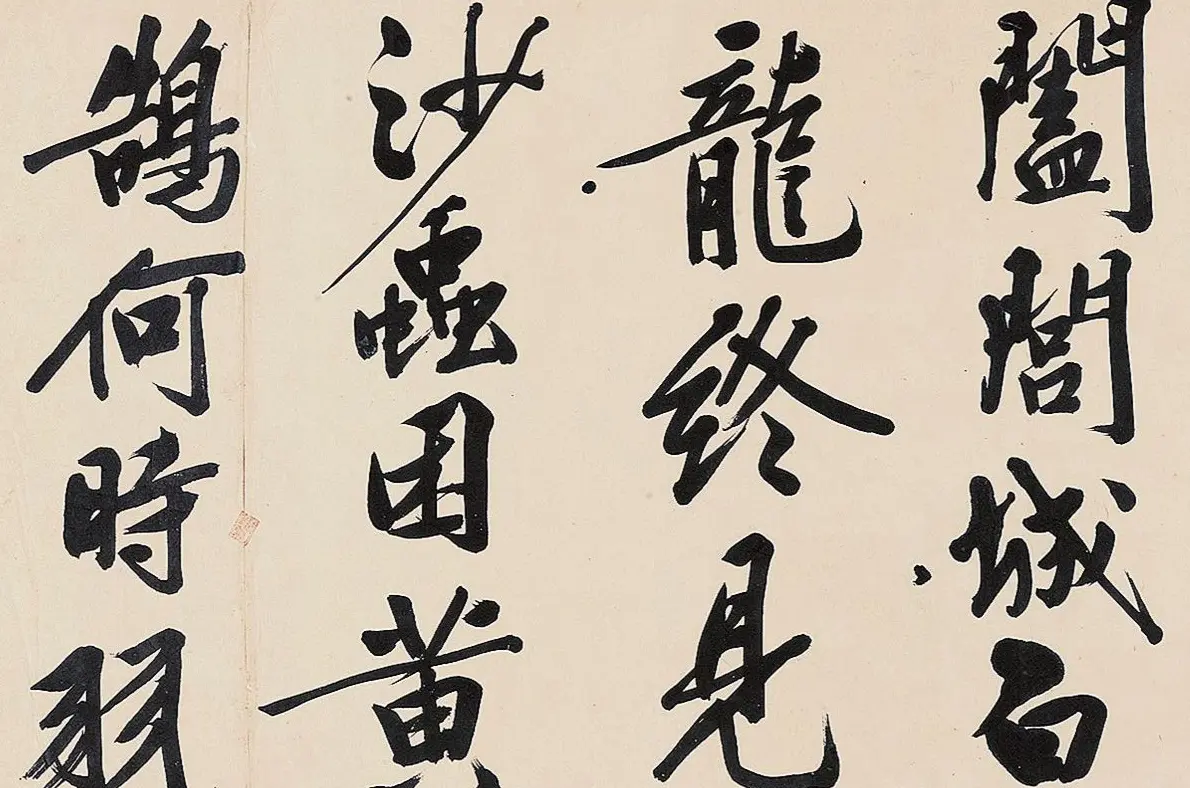 闔閭城白
龍終見
沙蟲困黃
鵠何時羽